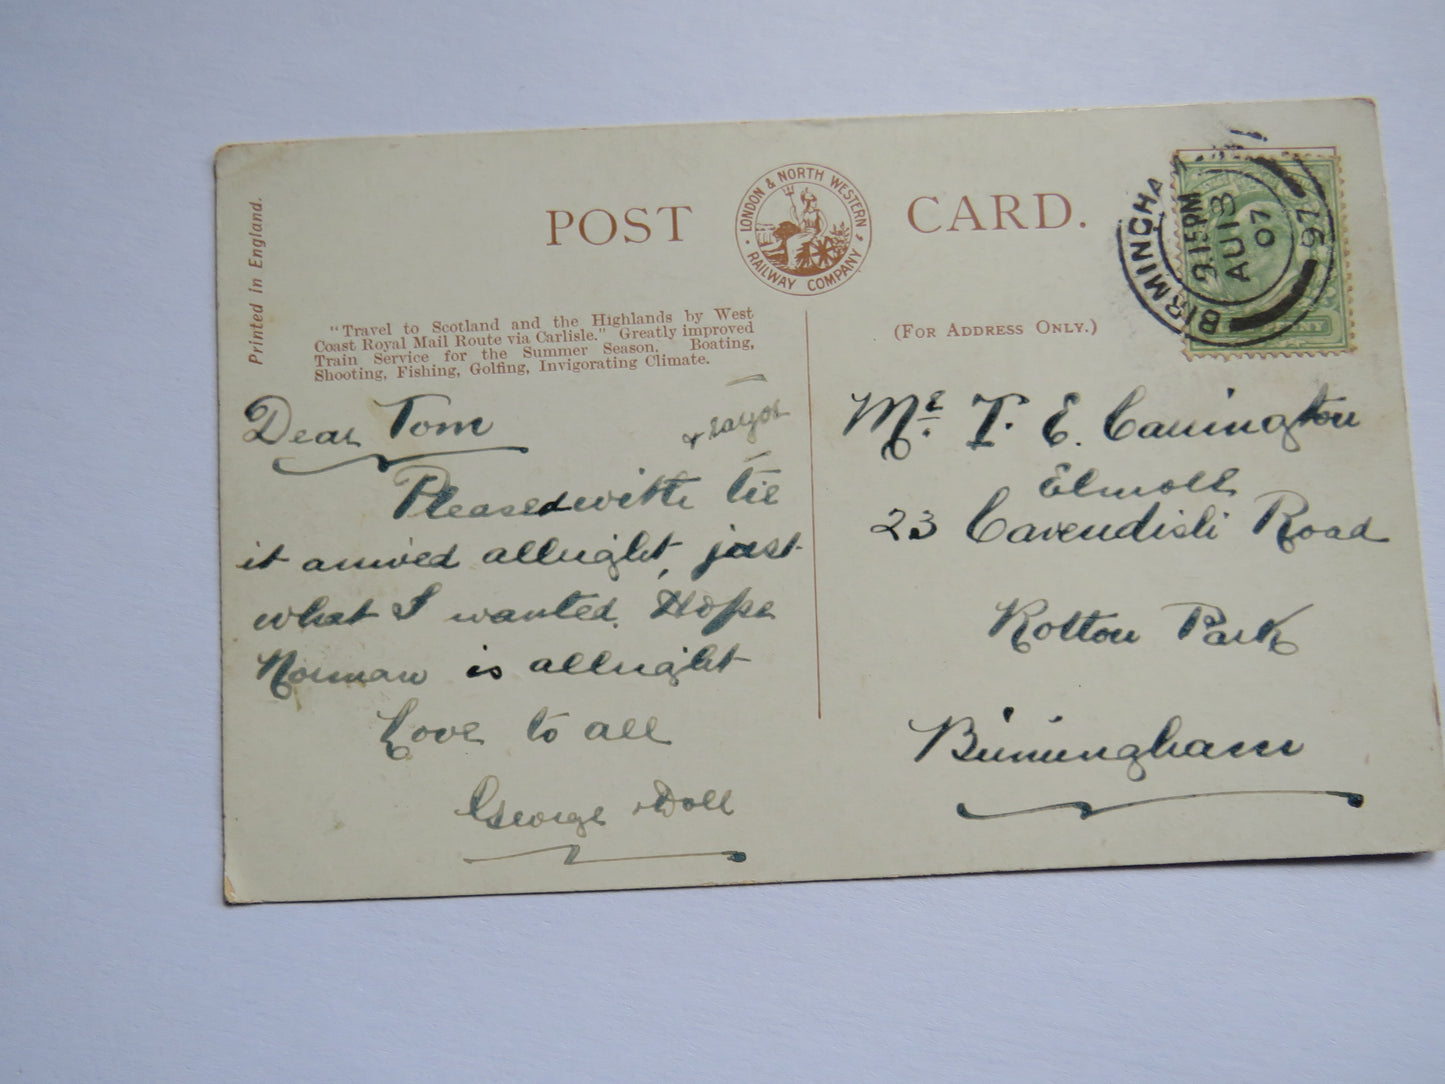 Printed in England.
POST CARD.
LONDON & NORTH WESTERN
RAILWAY COMPANY
"Travel to Scotland and the Highlands by West
Coast Royal Mail Route via Carlisle." Greatly improved
Train Service for the Summer Season. Boating,
Shooting, Fishing, Golfing, Invigorating Climate.
(FOR ADDRESS ONLY.)
BIRMINGHA
2.15PM
AU 13
07
97
Dear Tom
Pleased with tie
it arrived allright, just
what I wanted. Hope
Norman is allright
Love to all
George & Doll
Mr. T. E. Carrington
23 Cavendish Road
Rotton Park
Birmingham